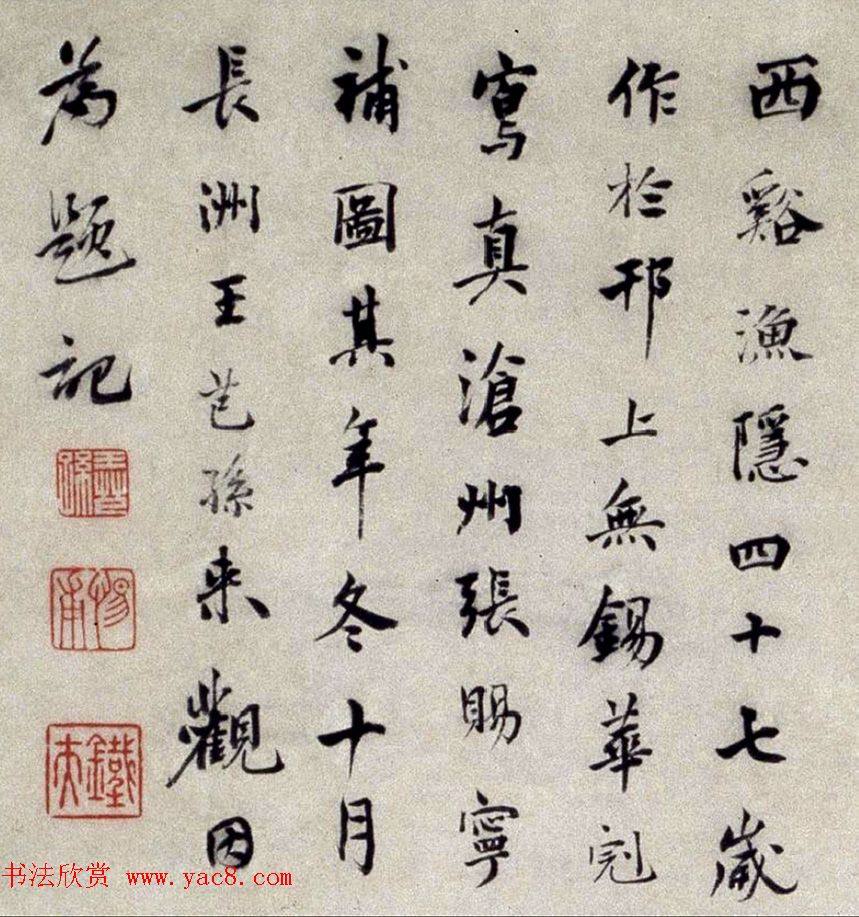 西谿漁隱四十七歲
作於邗上無錫華冠
寫真滄州張賜寧
補圖其年冬十月
長洲王芑孫來觀因
為題記
王芑孫
惕甫
鐵夫
书法欣赏 www.yac8.com